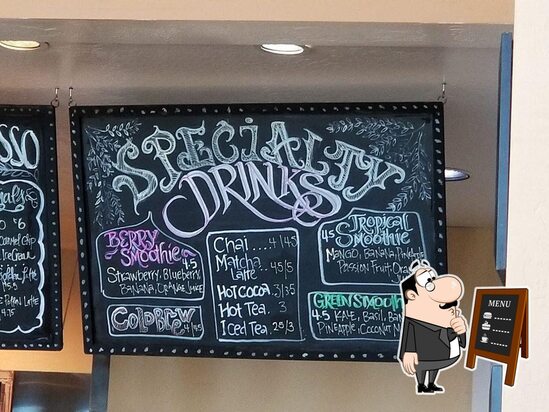 SSO
SPECIALTY
DRINKS
BERRY
SMOOTHIE 4.5
STRAWBERRY, BLUEBERRY,
BANANA, ORANGE JUICE
COLD BREW 4/4.5
Chai .... 4/4.5
Matcha
Latte ... 4.5/5
HOT COCOA . 3/3.5
HOT TEA . 3
ICED TEA . 2.5/3
TROPICAL
4.5 SMOOTHIE
MANGO, BANANA, PINEAPPLE
PASSION FRUIT, ORAN
GREEN SMOOTH
4.5 KALE, BASIL, BAN
PINEAPPLE, COCONUT M
MENU